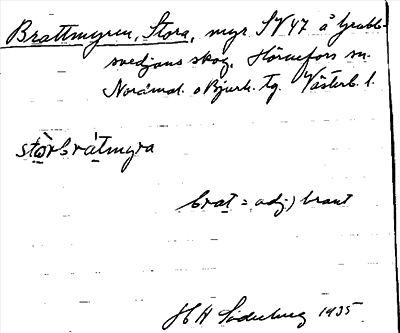 Brattmyren, Stora, myr SV 47 å Grubb-
svedjans skog, Hörnefors sn.
Nordmal. o Bjurh. tg. Västerb. l.
stòrbrátmyra
brat = adj.) brant
H A Söderberg 1935